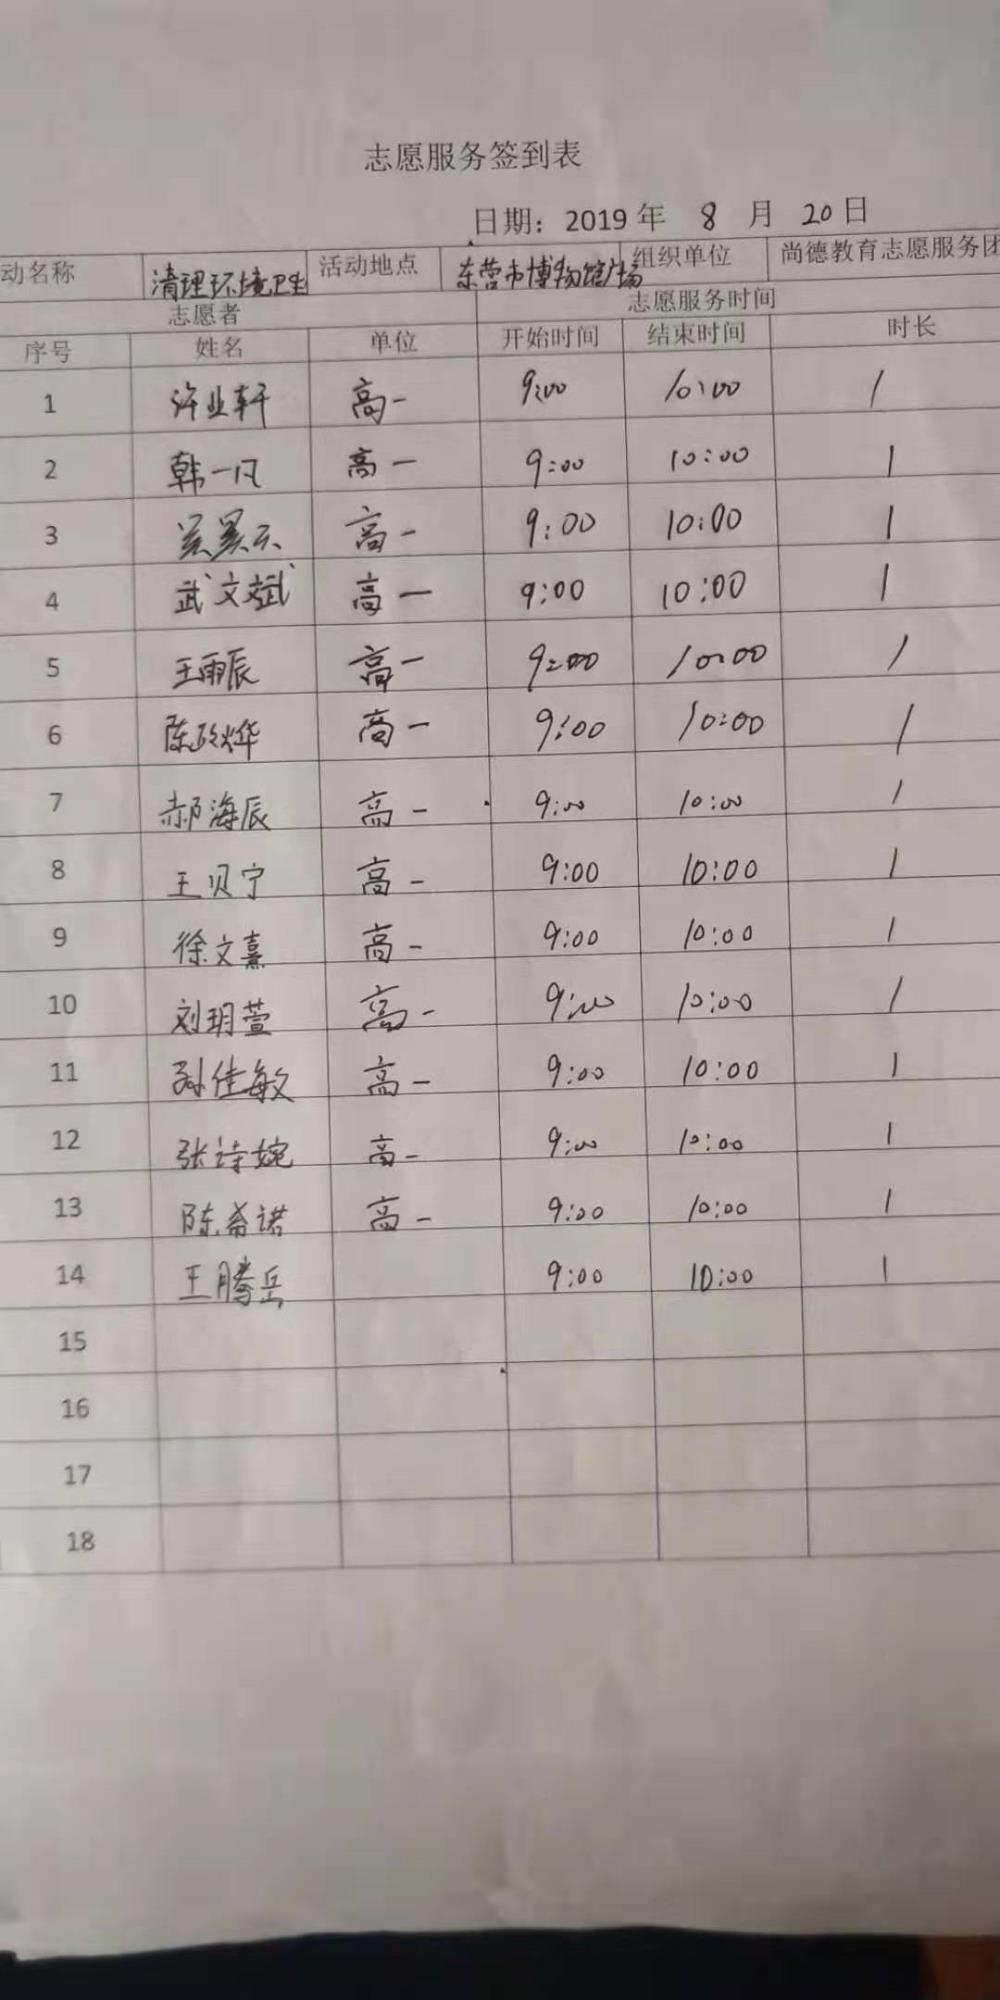 志愿服务签到表
日期：2019 年 8 月 20 日
动名称 清理环境卫生 活动地点 东营市博物馆广场 组织单位 尚德教育志愿服务团
志愿者 志愿服务时间
序号 姓名 单位 开始时间 结束时间 时长
1 许业轩 高一 9:00 10:00 1
2 韩一凡 高一 9:00 10:00 1
3 高一 9:00 10:00 1
4 武文斌 高一 9:00 10:00 1
5 王雨辰 高一 9:00 10:00 1
6 高一 9:00 10:00 1
7 郝海辰 高一 9:00 10:00 1
8 王贝宁 高一 9:00 10:00 1
9 徐文熹 高一 9:00 10:00 1
10 刘玥萱 高一 9:00 10:00 1
11 孙佳敏 高一 9:00 10:00 1
12 张诗婉 高一 9:00 10:00 1
13 陈希诺 高一 9:00 10:00 1
14 王腾岳 9:00 10:00 1
15
16
17
18